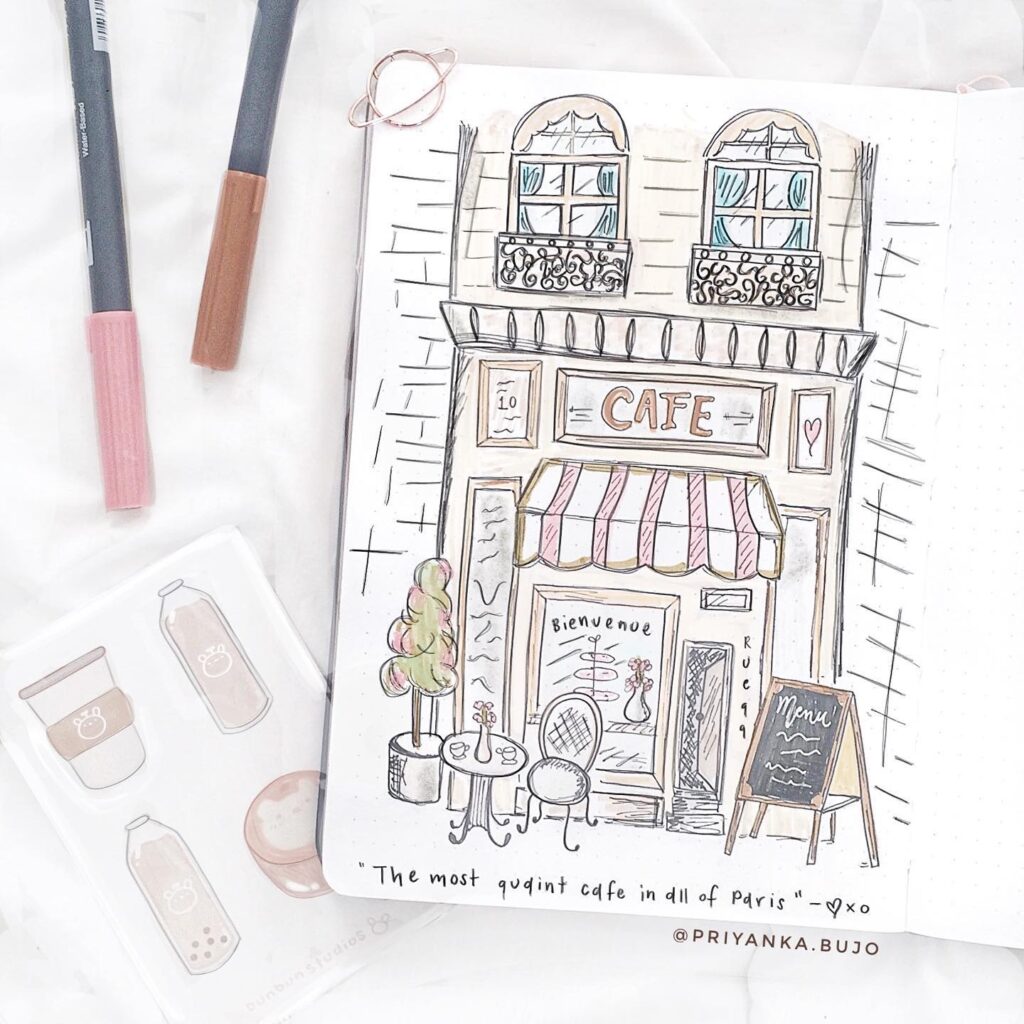 Water-Based
10
CAFE
Bienvenue
RUE 99
Menu
"The most quaint cafe in all of Paris" - ♡xo
@PRIYANKA.BUJO
bunbunstudios